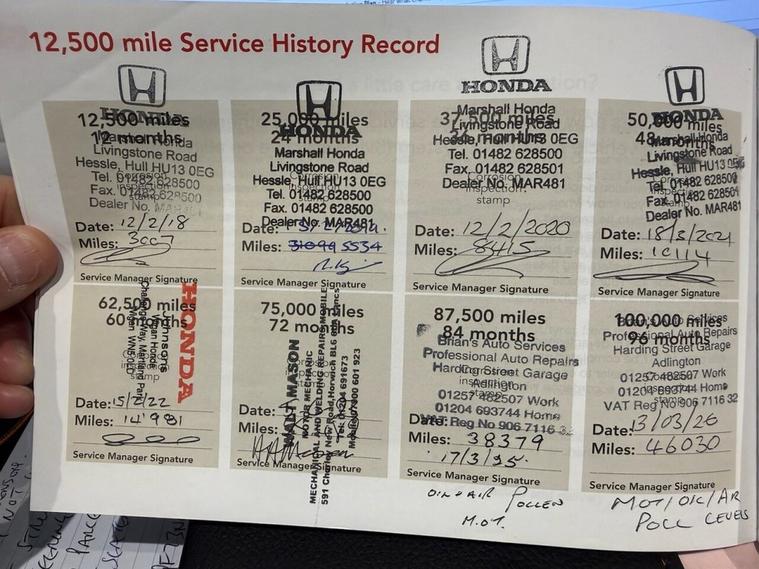 12,500 mile Service History Record
HONDA
12,500 miles
12 months
Marshall Honda
Livingstone Road
Hessle, Hull HU13 0EG
Tel. 01482 628500
Fax. 01482 628500
Dealer No. MAR481
Date: 12/2/18
Miles: 3007
Service Manager Signature
HONDA
25,000 miles
24 months
Marshall Honda
Livingstone Road
Hessle, Hull HU13 0EG
Tel. 01482 628500
Fax. 01482 628500
Dealer No. MAR481
Date:
Miles: 5534
Service Manager Signature
HONDA
37,500 miles
36 months
Marshall Honda
Livingstone Road
Hessle, Hull HU13 0EG
Tel. 01482 628500
Fax. 01482 628501
Dealer No. MAR481
corrosion
inspection
stamp
Date: 12/2/2020
Miles: 8415
Service Manager Signature
HONDA
50,000 miles
48 months
Marshall Honda
Livingstone Road
Hessle, Hull HU13 0EG
Tel. 01482 628500
Fax. 01482 628501
Dealer No. MAR481
Date: 18/3/2021
Miles: 10114
Service Manager Signature
62,500 miles
60 months
HONDA
Johnsons
Wigan Honda
Date: 15/2/22
Miles: 14'981
Service Manager Signature
75,000 miles
72 months
WALT MASON
MOTOR MECHANIC
MECHANICAL AND WELDING REPAIRS MOBILE
591 Chorley New Road, Horwich BL6
Tel: 01204 691673
Date:
Miles:
Service Manager Signature
87,500 miles
84 months
Brian's Auto Services
Professional Auto Repairs
Harding Street Garage
Adlington
01257 482507 Work
01204 693744 Home
VAT Reg No 906 7116 32
Date:
Miles: 38379
17/3/25.
Service Manager Signature
100,000 miles
96 months
Brian's Auto Services
Professional Auto Repairs
Harding Street Garage
Adlington
01257 482507 Work
01204 693744 Home
VAT Reg No 906 7116 32
Date: 13/03/26
Miles: 46030
Service Manager Signature
OIL + AIR POLLEN
M.O.T.
MOT/OIL/AIR
POLL LEVELS